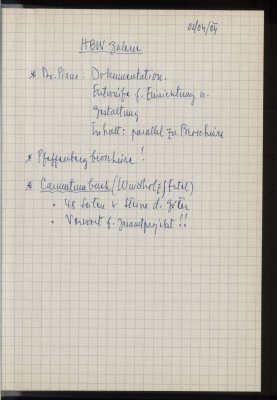 04/04/04
HBW Galerie
* Dr. Piras: Dokumentation.
Entwürfe f. Einrichtung u.
Gestaltung
Inhalt: parallel zu Broschüre
* Pfaffenberg broschüre!
* Carnuntumbuch (Windholz/Ertel)
• 48 Seiten & Steine d. Götter
• Vorwort f. Gesamtprojekt!!